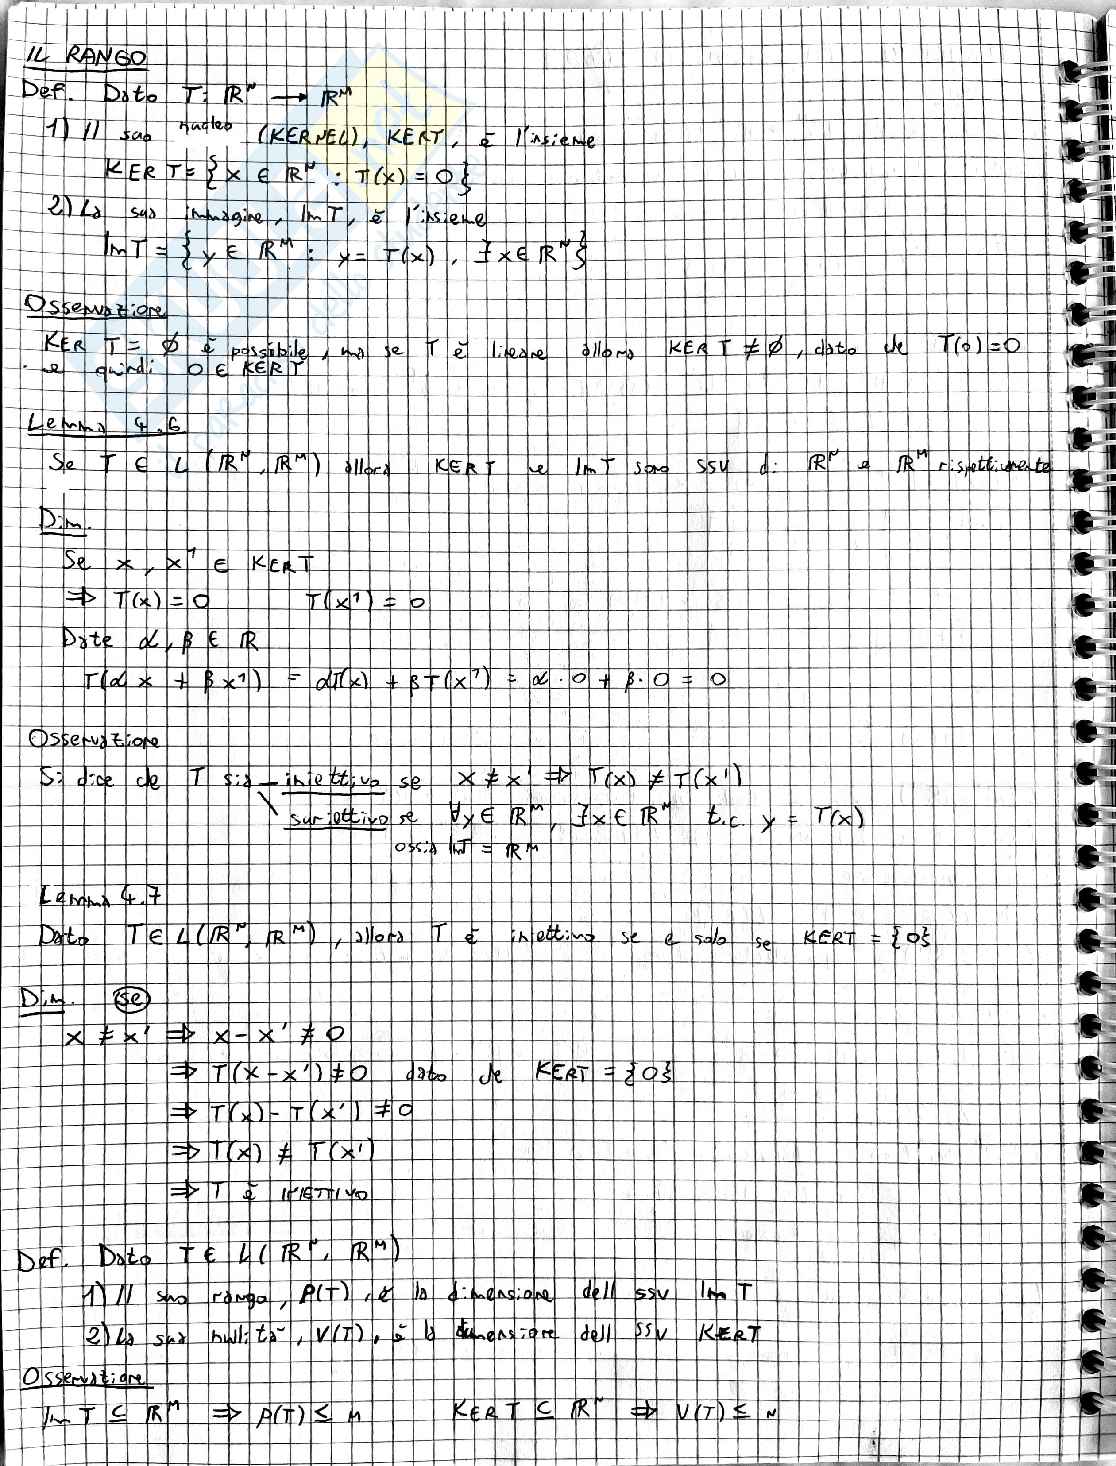 IL RANGO
Def. Dato T: ℝᴺ → ℝᴹ
1) Il suo nucleo (KERNEL), KERT, è l'insieme
KER T = { x ∈ ℝᴺ : T(x) = 0 }
2) La sua immagine, ImT, è l'insieme
ImT = { y ∈ ℝᴹ : y = T(x), ∃ x ∈ ℝᴺ }
Osservazione
KER T = ∅ è possibile, ma se T è lineare allora KER T ≠ ∅, dato che T(0) = 0
e quindi 0 ∈ KERT
Lemma 4.6
Se T ∈ L (ℝᴺ, ℝᴹ) allora KERT e ImT sono SSV di ℝᴺ e ℝᴹ rispettivamente
Dim.
Se x, x¹ ∈ KERT
⇒ T(x) = 0 T(x¹) = 0
Date α, β ∈ ℝ
T(α x + β x¹) = αT(x) + βT(x¹) = α · 0 + β · 0 = 0
Osservazione
Si dice che T sia iniettivo se x ≠ x' ⇒ T(x) ≠ T(x')
suriettivo se ∀y ∈ ℝᴹ, ∃x ∈ ℝᴺ t.c. y = T(x)
ossia ImT = ℝᴹ
Lemma 4.7
Dato T ∈ L(ℝᴺ, ℝᴹ), allora T è iniettivo se e solo se KERT = {0}
Dim. se
x ≠ x' ⇒ x - x' ≠ 0
⇒ T(x - x') ≠ 0 dato che KERT = {0}
⇒ T(x) - T(x') ≠ 0
⇒ T(x) ≠ T(x')
⇒ T è INIETTIVO
Def. Dato T ∈ L(ℝᴺ, ℝᴹ)
1) Il suo rango, ρ(T), è la dimensione dell SSV ImT
2) La sua nullità, V(T), è la dimensione dell SSV KERT
Osservazione
Im T ⊆ ℝᴹ ⇒ ρ(T) ≤ M KERT ⊆ ℝᴺ ⇒ V(T) ≤ N